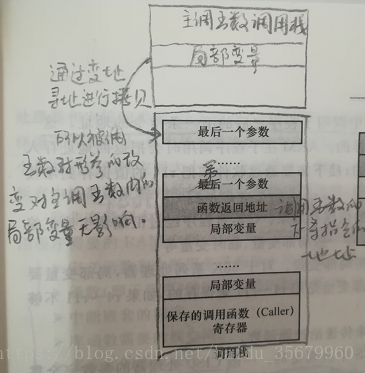 主调函数调用栈
局部变量
通过变址
寻址进行拷贝
所以被调
函数对形参的改
变对主调函数内的
局部变量无影响。
最后一个参数
……
第
最后一个参数
函数返回地址
调用函数的
下一条指令的
地址
局部变量
……
局部变量
保存的调用函数（Caller）
寄存器
调用栈
https://blog.csdn.net/baidu_35679960